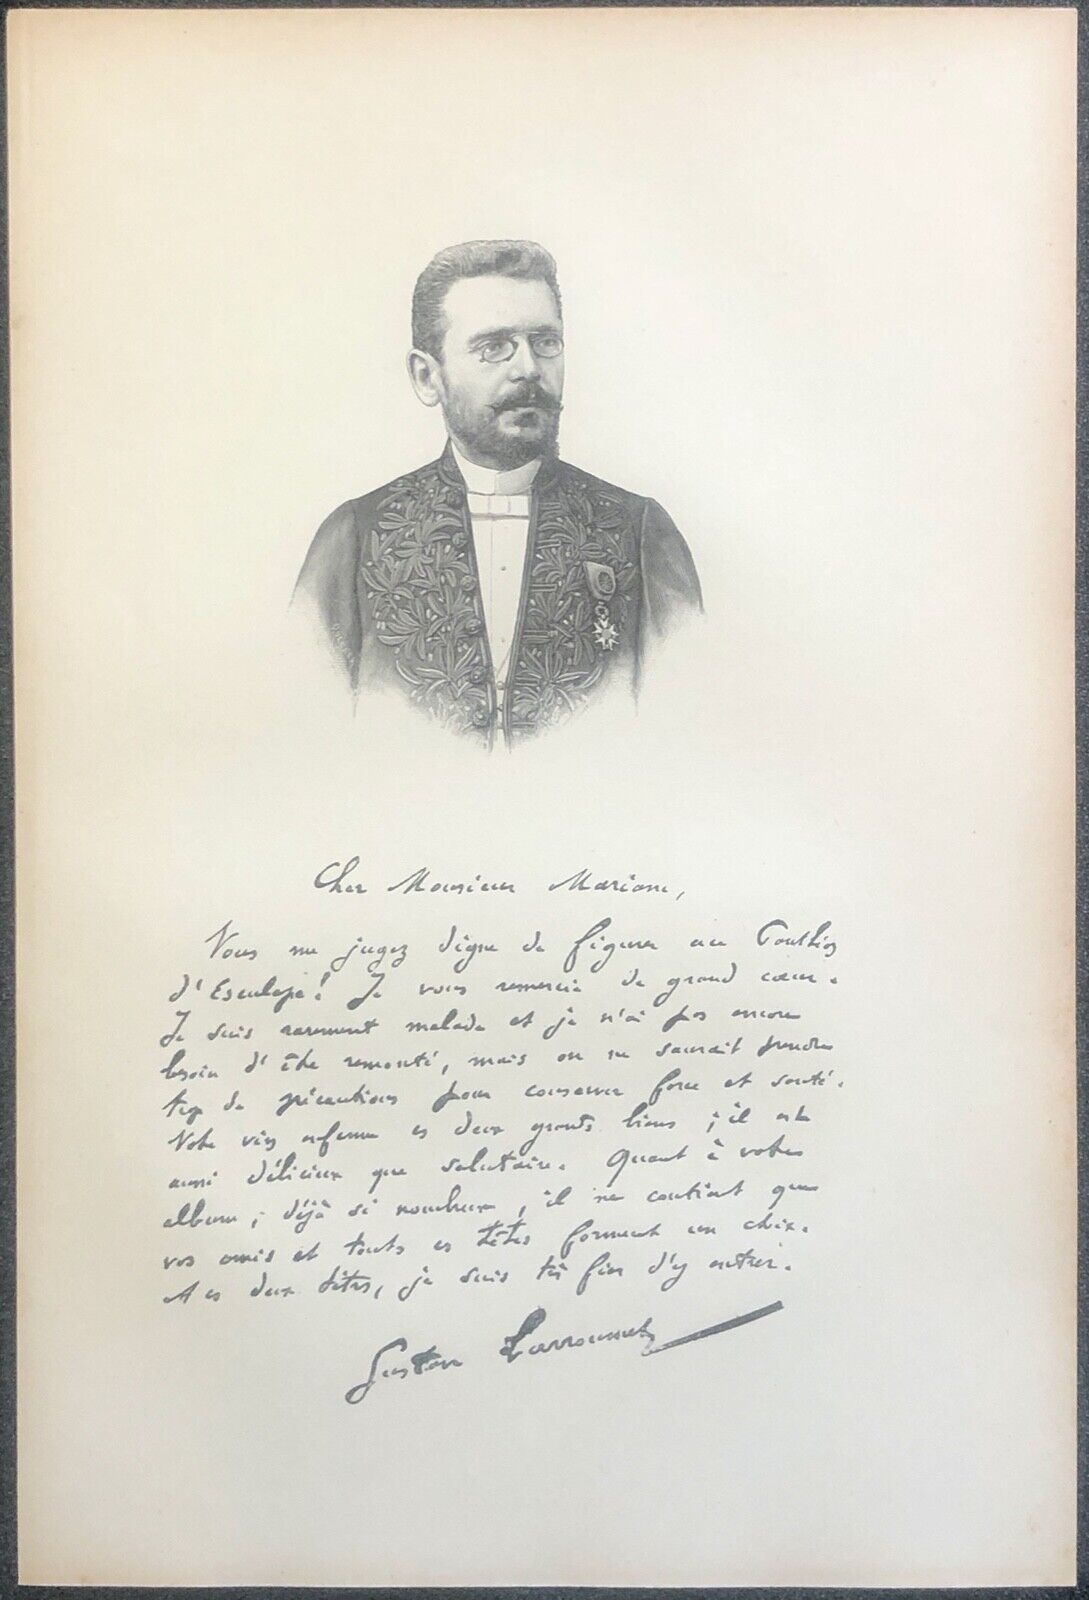 Cher Monsieur Mariani,
Vous me jugez digne de figurer au Panthéon
d'Esculape! Je vous remercie de grand cœur.
Je suis rarement malade et je n'ai pas encore
besoin d'être remonté, mais on ne saurait prendre
trop de précautions pour conserver force et santé.
Votre vin enferme ces deux grands biens ; il est
aussi délicieux que salutaire. Quant à votre
album, déjà si nombreux, il ne contient que
vos amis et toutes ces têtes forment un choix.
A ces deux titres, je suis très fier d'y entrer.
Gustave Larroumet